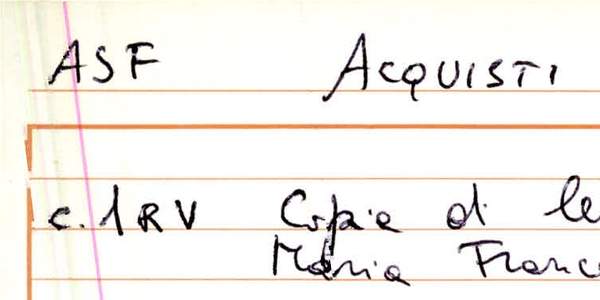 ASF ACQUISTI
c. 1RV Copia di le
Maria Franc